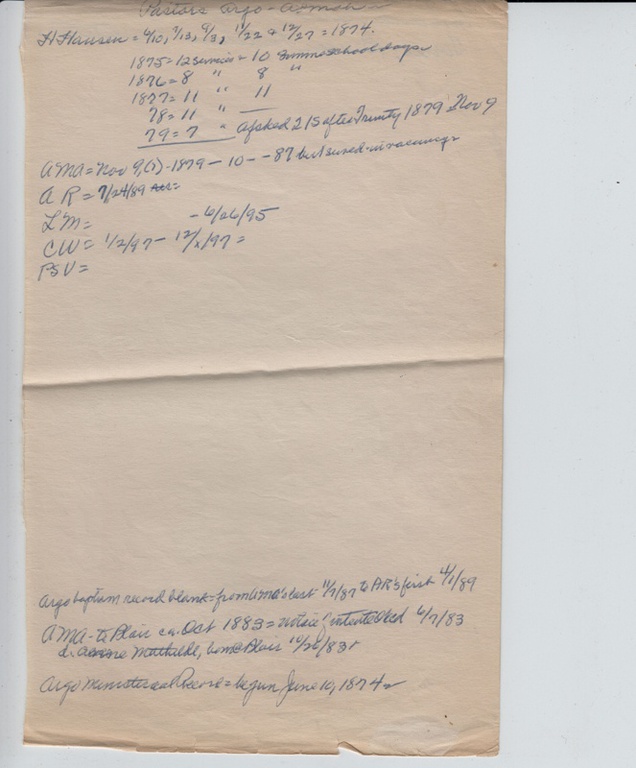 Pastors Argo - 
H Hansen = 6/10, 7/13, 9/3, 11/22 & 12/27 = 1874.
1875 = 12 services = 10 Summer school days
1876 = 8 " 8 "
1877 = 11 " 11
78 = 11 "
79 = 7 " Afsked 21 S after Trinity 1879 Nov 9
AMA = Nov 9, (?) - 1879 - 10 - - 87 but served in vacancy
A R = 7/24/89
LM = - 6/26/95
CW = 1/2/97 - 12/x/97 =
PSV =
Argo baptism record blank = from AMA's last 11/7/87 to AR's first 4/1/89
AMA - to Blair ca. Oct 1883 = notice 6/7/83
d. Mathilde, Blair 10/26/83
Argo Ministerial Record = begun June 10, 1874